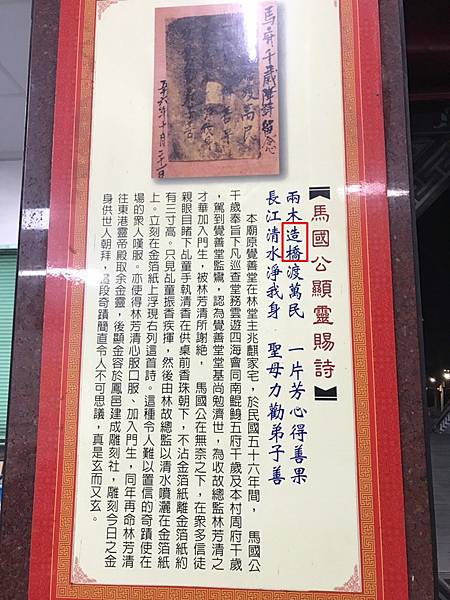 馬府千歲降詩留念
五十六年十月二十七日
【馬國公顯靈賜詩】
兩木造橋渡萬民　一片芳心得善果
長江清水淨我身　聖母力勸弟子善
本廟原覺善堂在林堂主兆麒家宅，於民國五十六年間，　馬國公
千歲奉旨下凡巡查堂務雲遊四海會同南鯤鯓五府千歲及本村周府千歲
，駕到覺善堂監鸞，認為覺善堂堂基尚勉濟世，為收故總監林芳清之
才華加入門生，被林芳清所謝絶，　馬國公在無奈之下，在衆多信徒
親眼目睹下乩童手執清香在供桌前香珠朝下，不沾金箔紙離金箔紙約
有三寸高。只見乩童振香疾揮，然後由林故總監以清水噴灑在金箔紙
上。立刻在金箔紙上浮現右列這首詩。這種令人難以置信的奇蹟使在
場的衆人嘆服。亦使得林芳清心服口服、加入門生，同年再命林芳清
往東港靈帝殿取余金靈，後顯金容於鳳邑建成雕刻社，雕刻今日之金
身供世人朝拜，這段奇蹟簡直令人不可思議，真是玄而又玄。